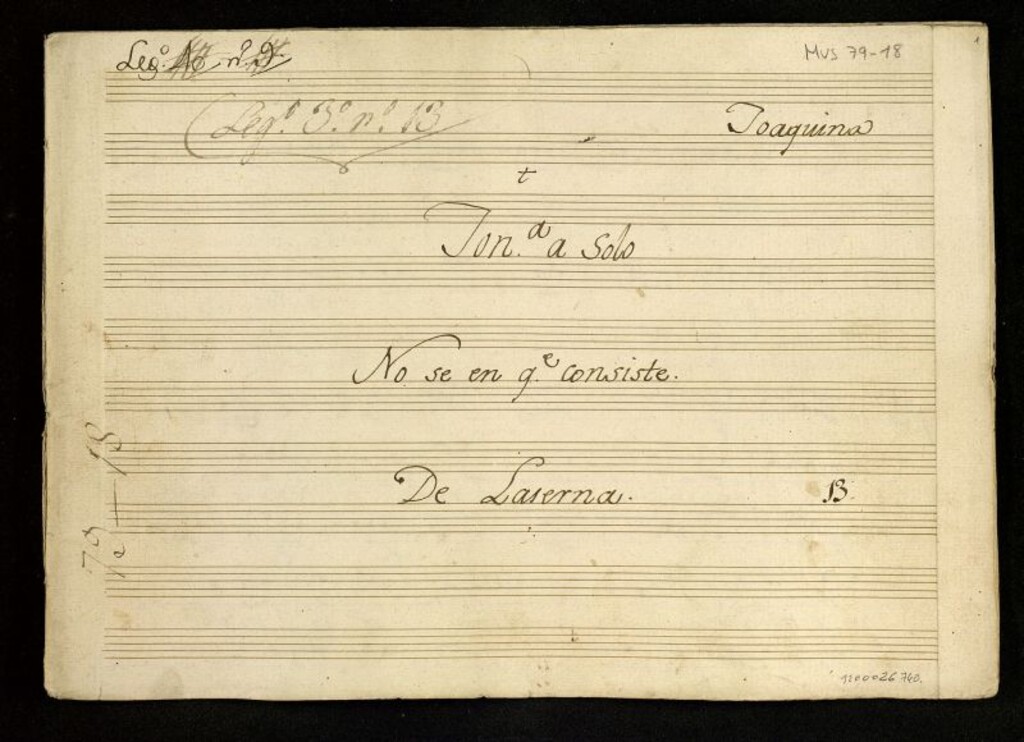 Leg.º nº 9.
Mus 79-18
Leg.º 3.º n.º 13
Joaquina
t
Ton.ª a Solo
No se en q.e consiste.
De Laserna.
13.
79-18
1200026740.